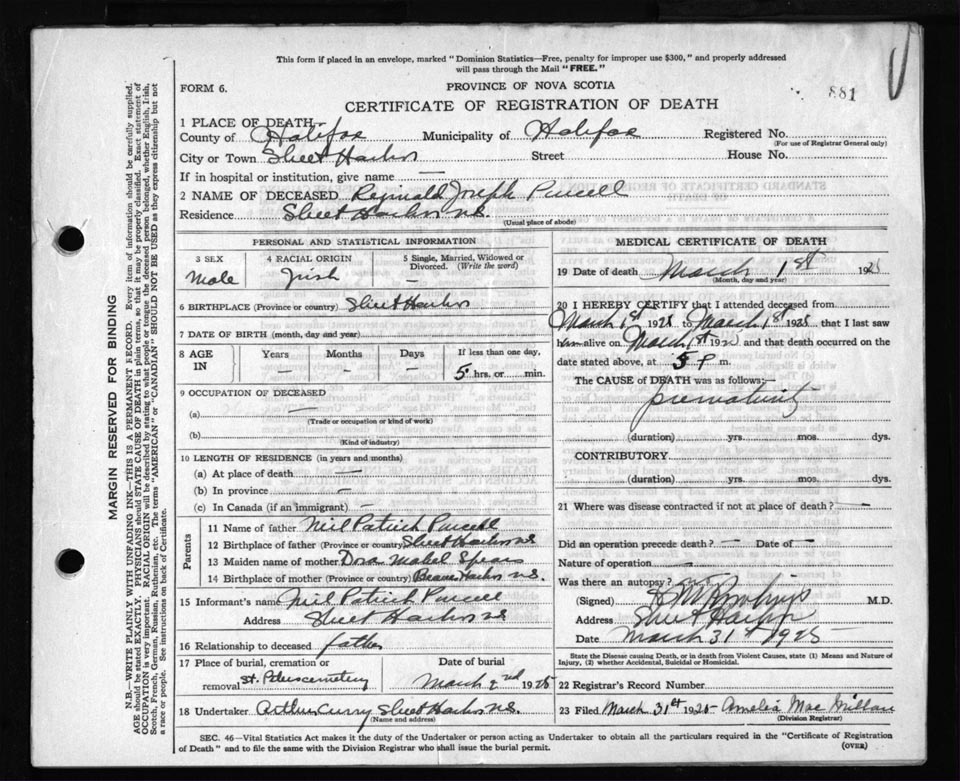 This form if placed in an envelope, marked "Dominion Statistics—Free, penalty for improper use $300," and properly addressed
will pass through the Mail "FREE."
FORM 6.
PROVINCE OF NOVA SCOTIA
881
CERTIFICATE OF REGISTRATION OF DEATH
1 PLACE OF DEATH—
County of Halifax Municipality of Halifax Registered No.
(For use of Registrar General only)
City or Town Sheet Harbor Street House No.
If in hospital or institution, give name —
2 NAME OF DECEASED Reginald Joseph Purcell
Residence Sheet Harbor N.S.
(Usual place of abode)
PERSONAL AND STATISTICAL INFORMATION
3 SEX 4 RACIAL ORIGIN 5 Single, Married, Widowed or
Divorced. (Write the word)
Male Irish
6 BIRTHPLACE (Province or country) Sheet Harbor
7 DATE OF BIRTH (month, day and year)
8 AGE IN Years Months Days If less than one day,
— — — 5 hrs. or min.
9 OCCUPATION OF DECEASED
(a) —
(Trade or occupation or kind of work)
(b)
(Kind of industry)
10 LENGTH OF RESIDENCE (in years and months)
(a) At place of death —
(b) In province —
(c) In Canada (if an immigrant) —
Parents
11 Name of father Neil Patrick Purcell
12 Birthplace of father (Province or country) Sheet Harbor N.S.
13 Maiden name of mother Dora Mabel Spears
14 Birthplace of mother (Province or country) Harbor N.S.
15 Informant's name Neil Patrick Purcell
Address Sheet Harbor N.S.
16 Relationship to deceased father
17 Place of burial, cremation or Date of burial
removal St. Peters cemetery March 2nd 1925
18 Undertaker Arthur Curry Sheet Harbor N.S.
(Name and address)
MEDICAL CERTIFICATE OF DEATH
19 Date of death March 1st 192
(Month, day and year)
20 I HEREBY CERTIFY that I attended deceased from
March 1st 1925 to March 1st 1925 that I last saw
him alive on March 1st 192 and that death occurred on the
date stated above, at 5 p m.
The CAUSE of DEATH was as follows:—
prematurity
(duration) yrs. mos. dys.
CONTRIBUTORY
(duration) yrs. mos. dys.
21 Where was disease contracted if not at place of death? —
Did an operation precede death? — Date of —
Nature of operation —
Was there an autopsy?
(Signed) M.D.
Address Sheet Harbor
Date March 31st 1925
State the Disease causing Death, or in death from Violent Causes, state (1) Means and Nature of
Injury, (2) whether Accidental, Suicidal or Homicidal.
22 Registrar's Record Number
23 Filed March 31st 1925 Amelia MacMillan
(Division Registrar)
SEC. 46—Vital Statistics Act makes it the duty of the Undertaker or person acting as Undertaker to obtain all the particulars required in the "Certificate of Registration
of Death" and to file the same with the Division Registrar who shall issue the burial permit.
(OVER)
MARGIN RESERVED FOR BINDING
N.B.—WRITE PLAINLY WITH UNFADING INK—THIS IS A PERMANENT RECORD. Every item of information should be carefully supplied.
AGE should be stated EXACTLY. PHYSICIANS should STATE CAUSE OF DEATH in plain terms, so that it may be properly classified. Exact statement of
OCCUPATION is very important. RACIAL ORIGIN will be described by stating to what people or tongue the deceased person belonged, whether English, Irish,
Scotch, French, German, Russian, Ruthenian, etc. The terms "AMERICAN" or "CANADIAN" SHOULD NOT BE USED as they express citizenship but not
a race or people. See instructions on back of Certificate.